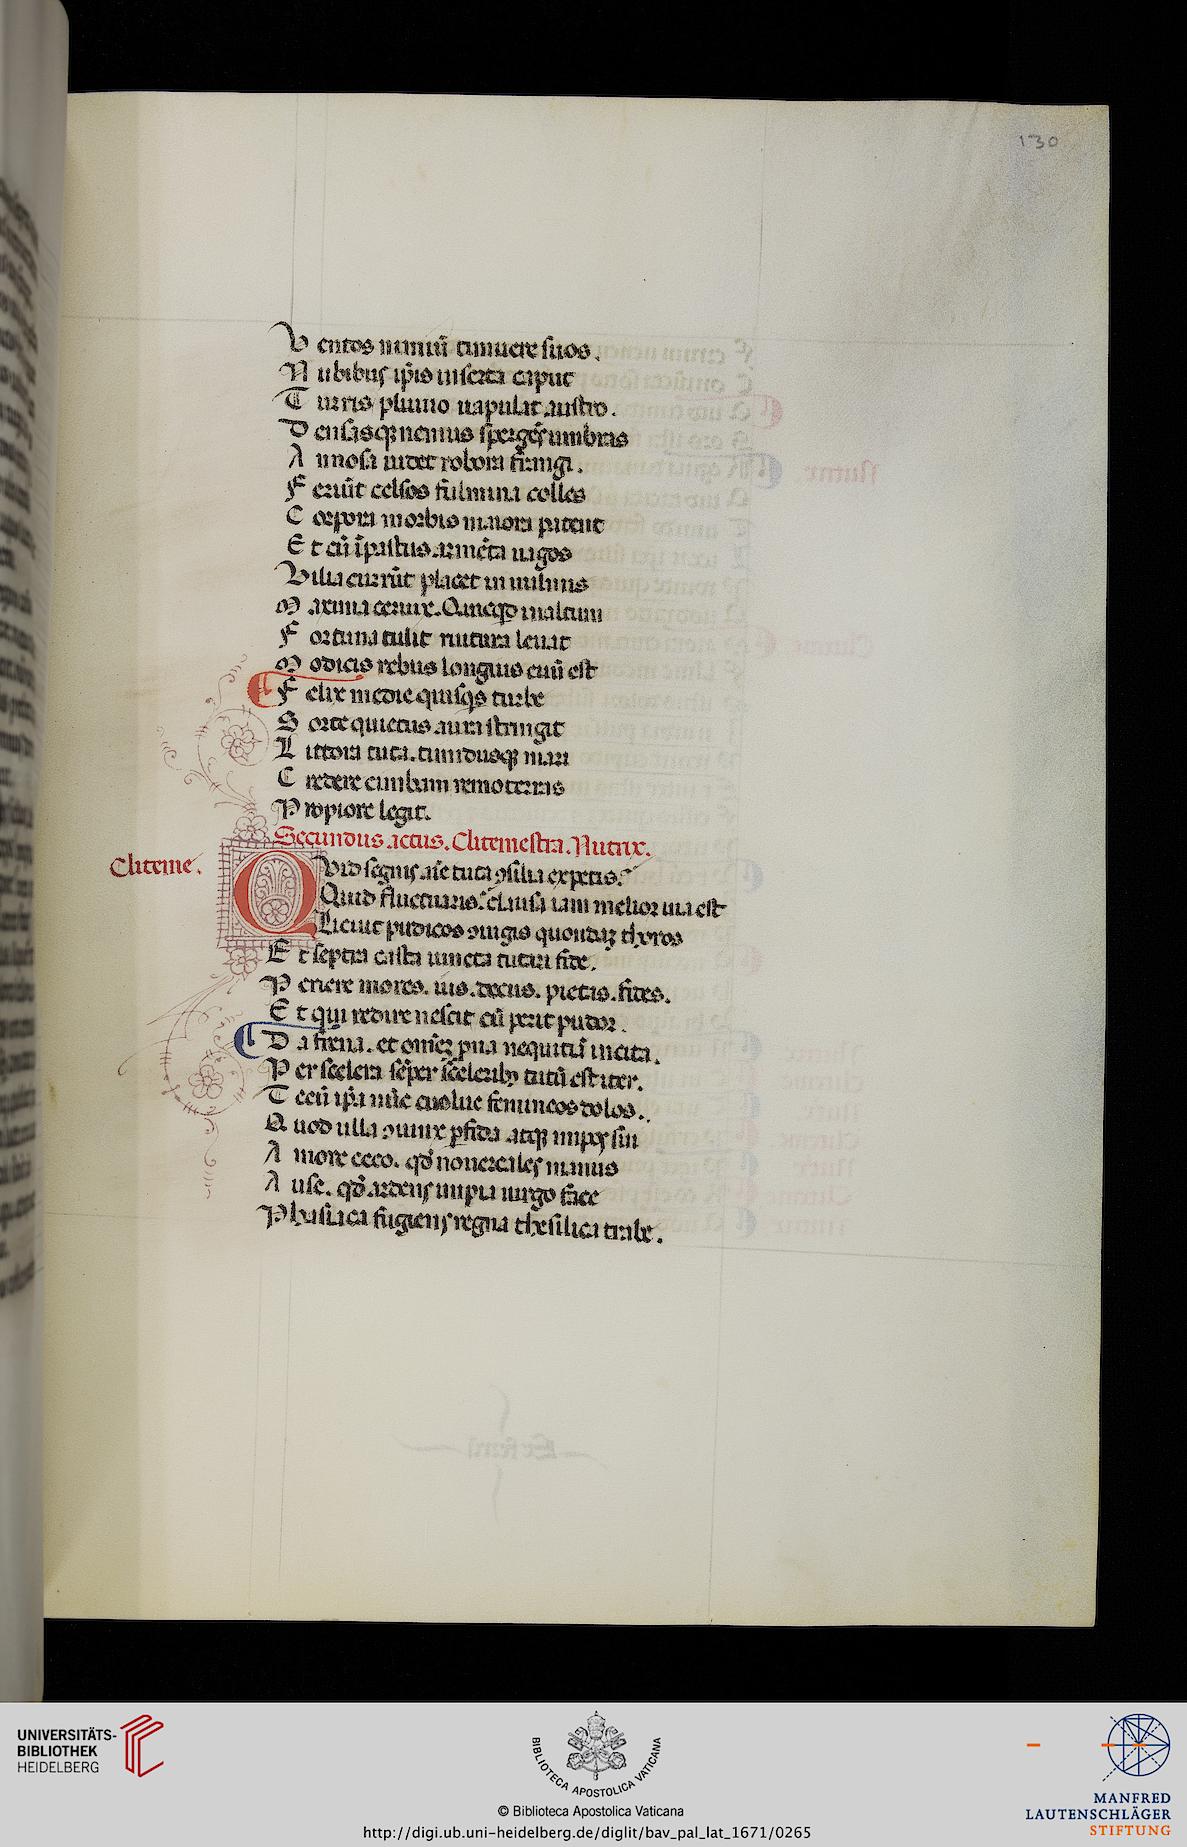 130
V entos nimiũ timuere suos.
N ubibus ip̃is inserta caput
T urris pluuio uapulat austro.
D ensasqꝫ nemus spargẽs umbras
A nnosa uidet robora frangi.
F eriũt celsos fulmina colles
C orpora morbis maiora patent
E t cũ ĩ pastus armẽta uagos
V ilia currũt placet in uulnus
M axima ceruix. Quicqd̃ in altum
F ortuna tulit ruitura leuat
M odicis rebus longius euũ est
F elix medie quisqs turbe
S orte quietus aura stringit
L ittora tuta. timidusqꝫ mari
C redere cimbam remo terras
P ropiore legit.
Secundus actus. Clitemestra. Nutrix.
Cliteme.
QVid segnis aĩe tuta ꝯsilia expetis?
Quid fluctuaris? clausa iam melior uia est
Licuit pudicos ꝯiugis quondaꝫ thoros
E t septra casta uincta tutari fide.
P eriere mores. ius. decus. pietas. fides.
E t qui redire nescit cũ perit pudor.
D a frena. et omẽꝫ prona nequitiã incita.
P er scelera sẽper sceleribꝫ tutũ est iter.
T ecũ ip̃a nũc euolue femineos dolos.
Q uod ulla ꝯiunx ꝑfida atqꝫ impos sui
A more ceco. qd̃ nouercales manus
A use. qd̃ ardens impia uirgo face
P hasiaca fugiens regna thesilica trabe.
UNIVERSITÄTS-
BIBLIOTHEK
HEIDELBERG
BIBLIOTECA APOSTOLICA VATICANA
© Biblioteca Apostolica Vaticana
http://digi.ub.uni-heidelberg.de/diglit/bav_pal_lat_1671/0265
MANFRED
LAUTENSCHLÄGER
STIFTUNG